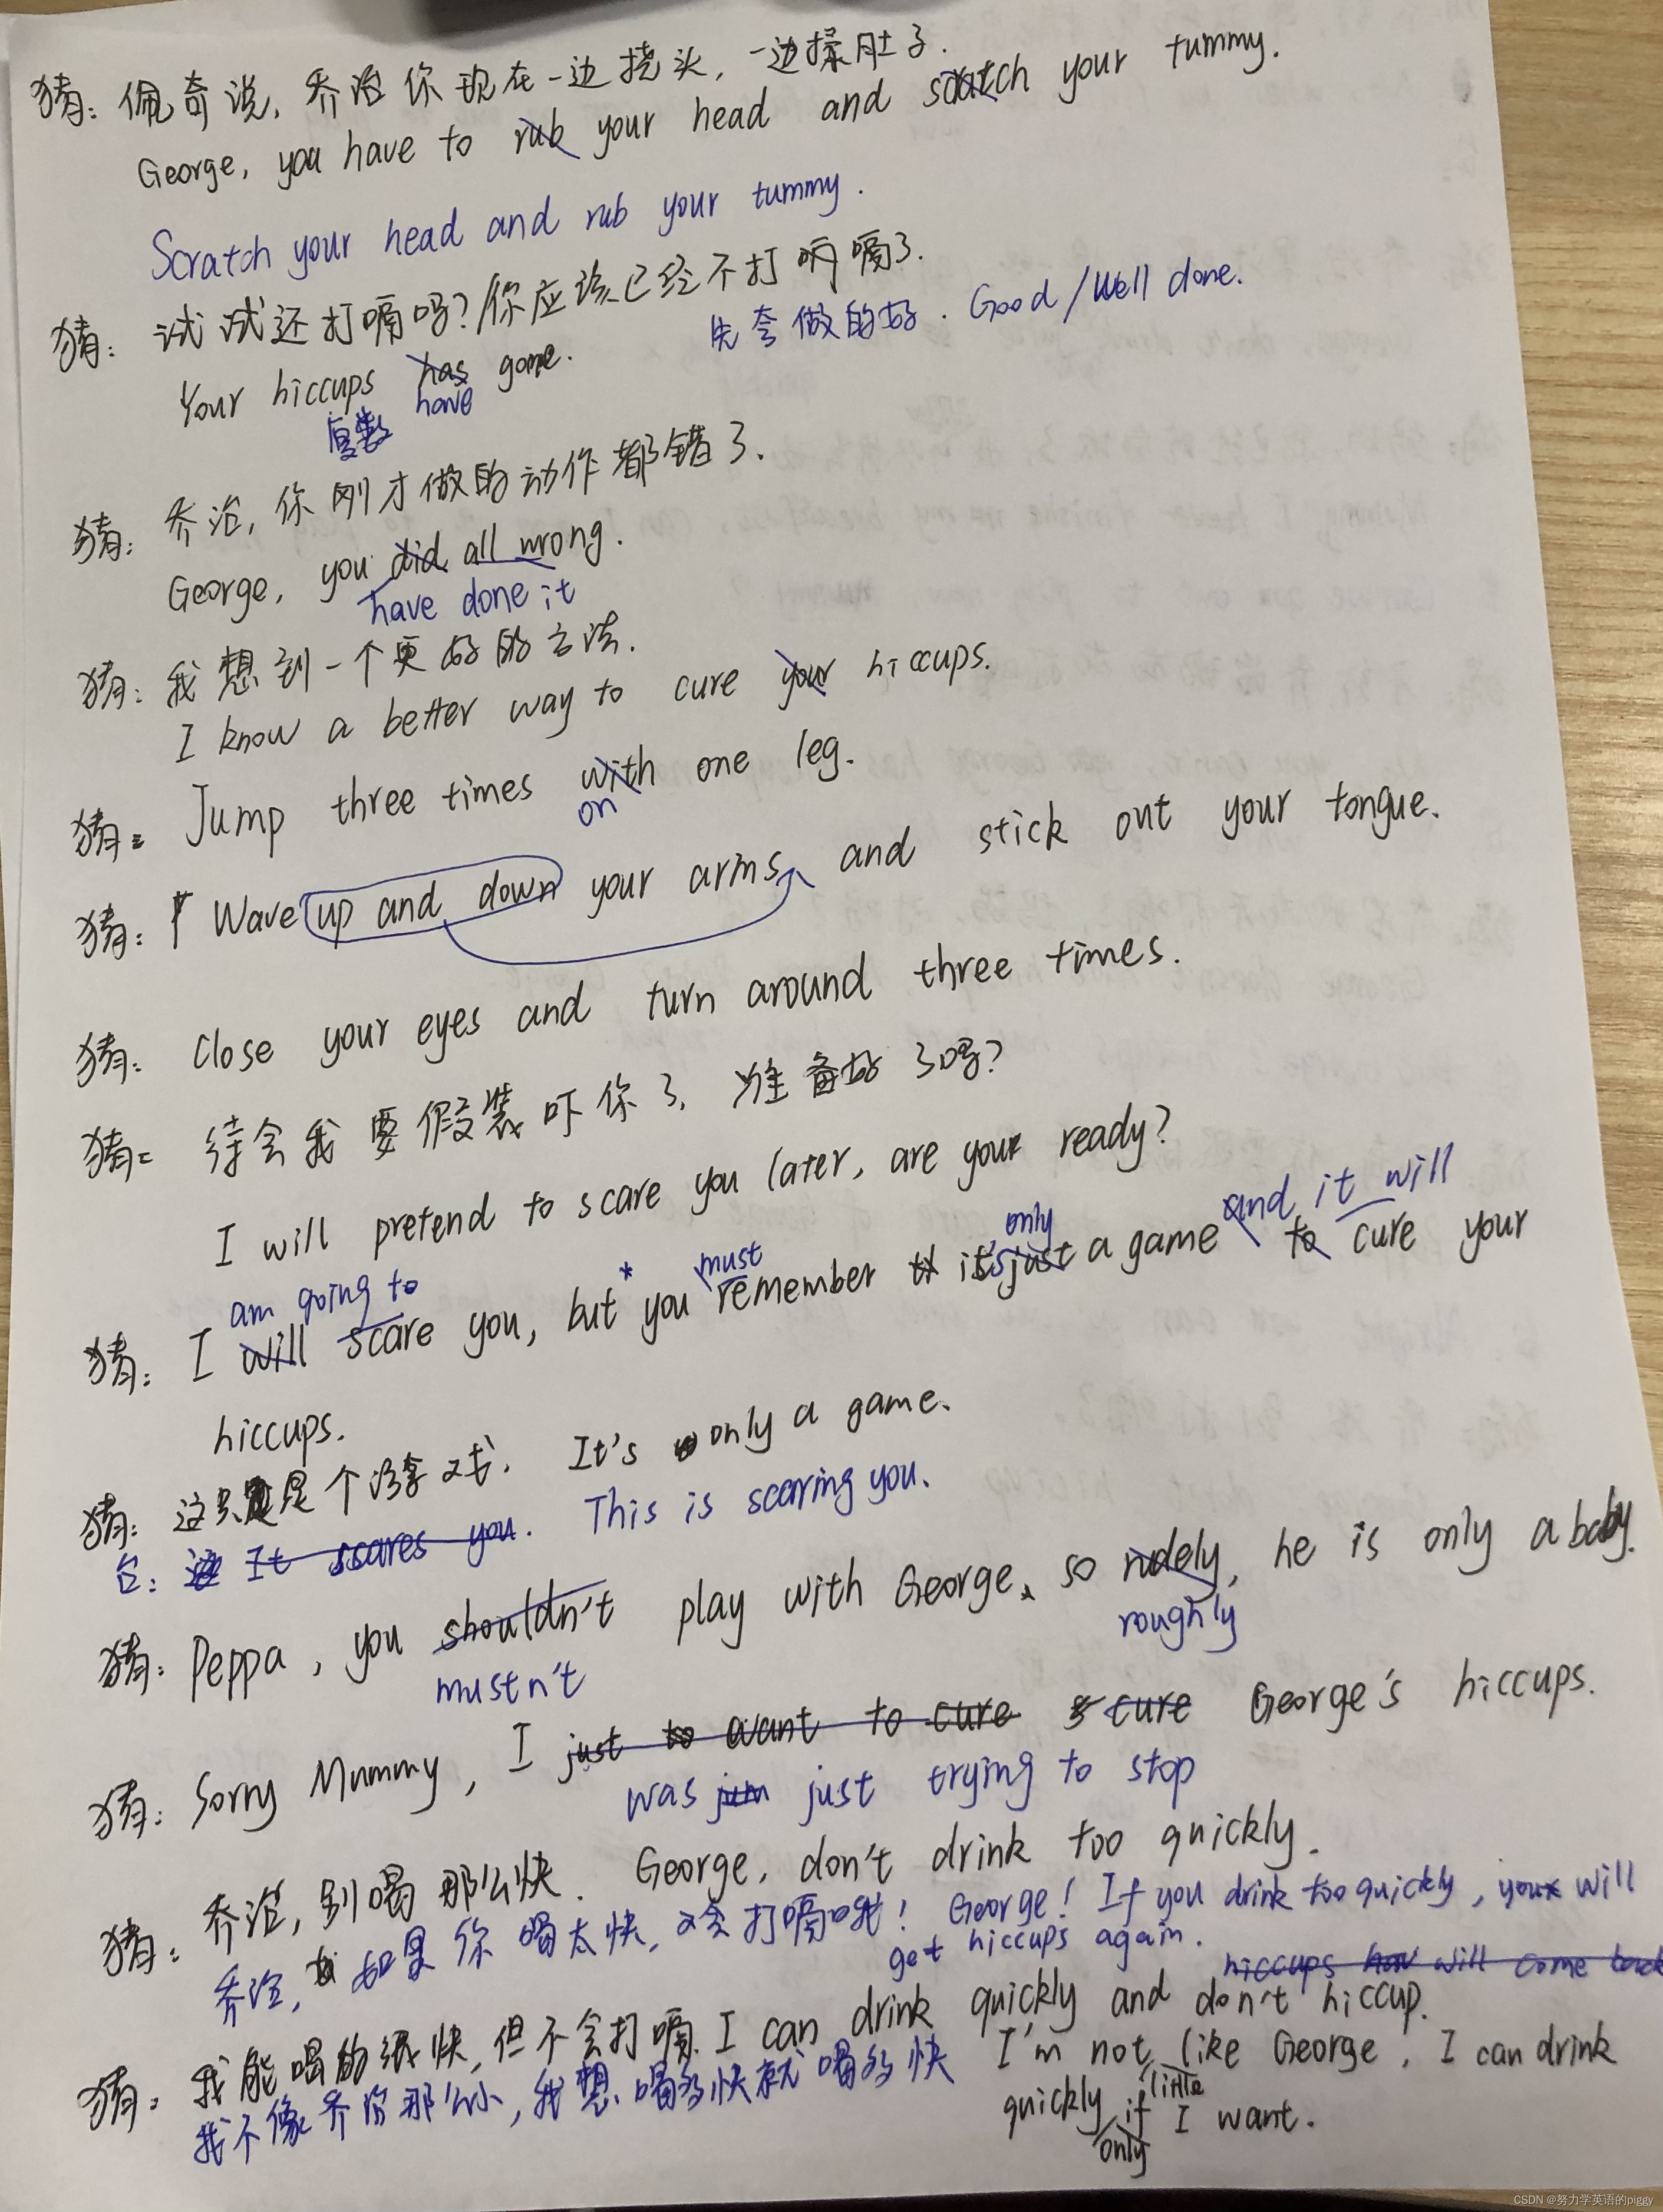 猪: 佩奇说, 乔治你现在一边挠头, 一边揉肚子.
George, you have to rub your head and scratch your tummy.
Scratch your head and rub your tummy.
猪: 试试还打嗝吗? 你应该已经不打嗝了.
先夸做的好. Good/Well done.
Your hiccups has gone.
复数 have
猪: 乔治, 你刚才做的动作都错了.
George, you did all wrong.
have done it
猪: 我想到一个更好的方法.
I know a better way to cure your hiccups.
猪: Jump three times with one leg.
on
猪: Wave up and down your arms and stick out your tongue.
猪: Close your eyes and turn around three times.
猪: 待会我要假装吓你了, 准备好了吗?
I will pretend to scare you later, are you ready?
am going to * must only and it will
猪: I will scare you, but you remember it's just a game to cure your
hiccups.
猪: 这只是个游戏. It's only a game.
It scares you. This is scaring you.
猪: Peppa, you shouldn't play with George, so rudely, he is only a baby.
mustn't roughly
猪: Sorry Mummy, I just to want to cure cure George's hiccups.
was just trying to stop
猪: 乔治, 别喝那么快. George, don't drink too quickly.
乔治, 如果你喝太快, 会打嗝哦! George! If you drink too quickly, you will
get hiccups again. hiccups will come back
猪: 我能喝的很快, 但不会打嗝. I can drink quickly and don't hiccup.
我不像乔治那么小, 我想喝多快就喝多快 I'm not like George, I can drink
little
quickly if I want.
only
CSDN @努力学英语的piggy